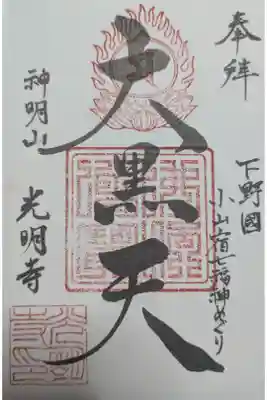 奉拝
下野國
小山宿七福神めぐり
大黒天
神明山
光明寺